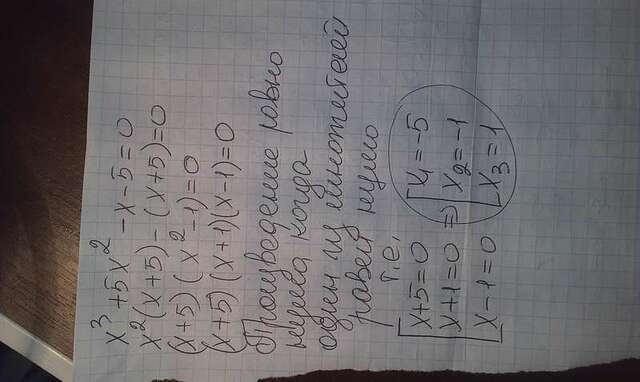 x³ + 5x² - x - 5 = 0
x²(x+5) - (x+5) = 0
(x+5)(x² - 1) = 0
(x+5)(x+1)(x-1) = 0
Произведение равно
нулю когда
один из множителей
равен нулю
т.е.
[x+5=0 [x₁=-5
[x+1=0 => [x₂=-1
[x-1=0 [x₃=1